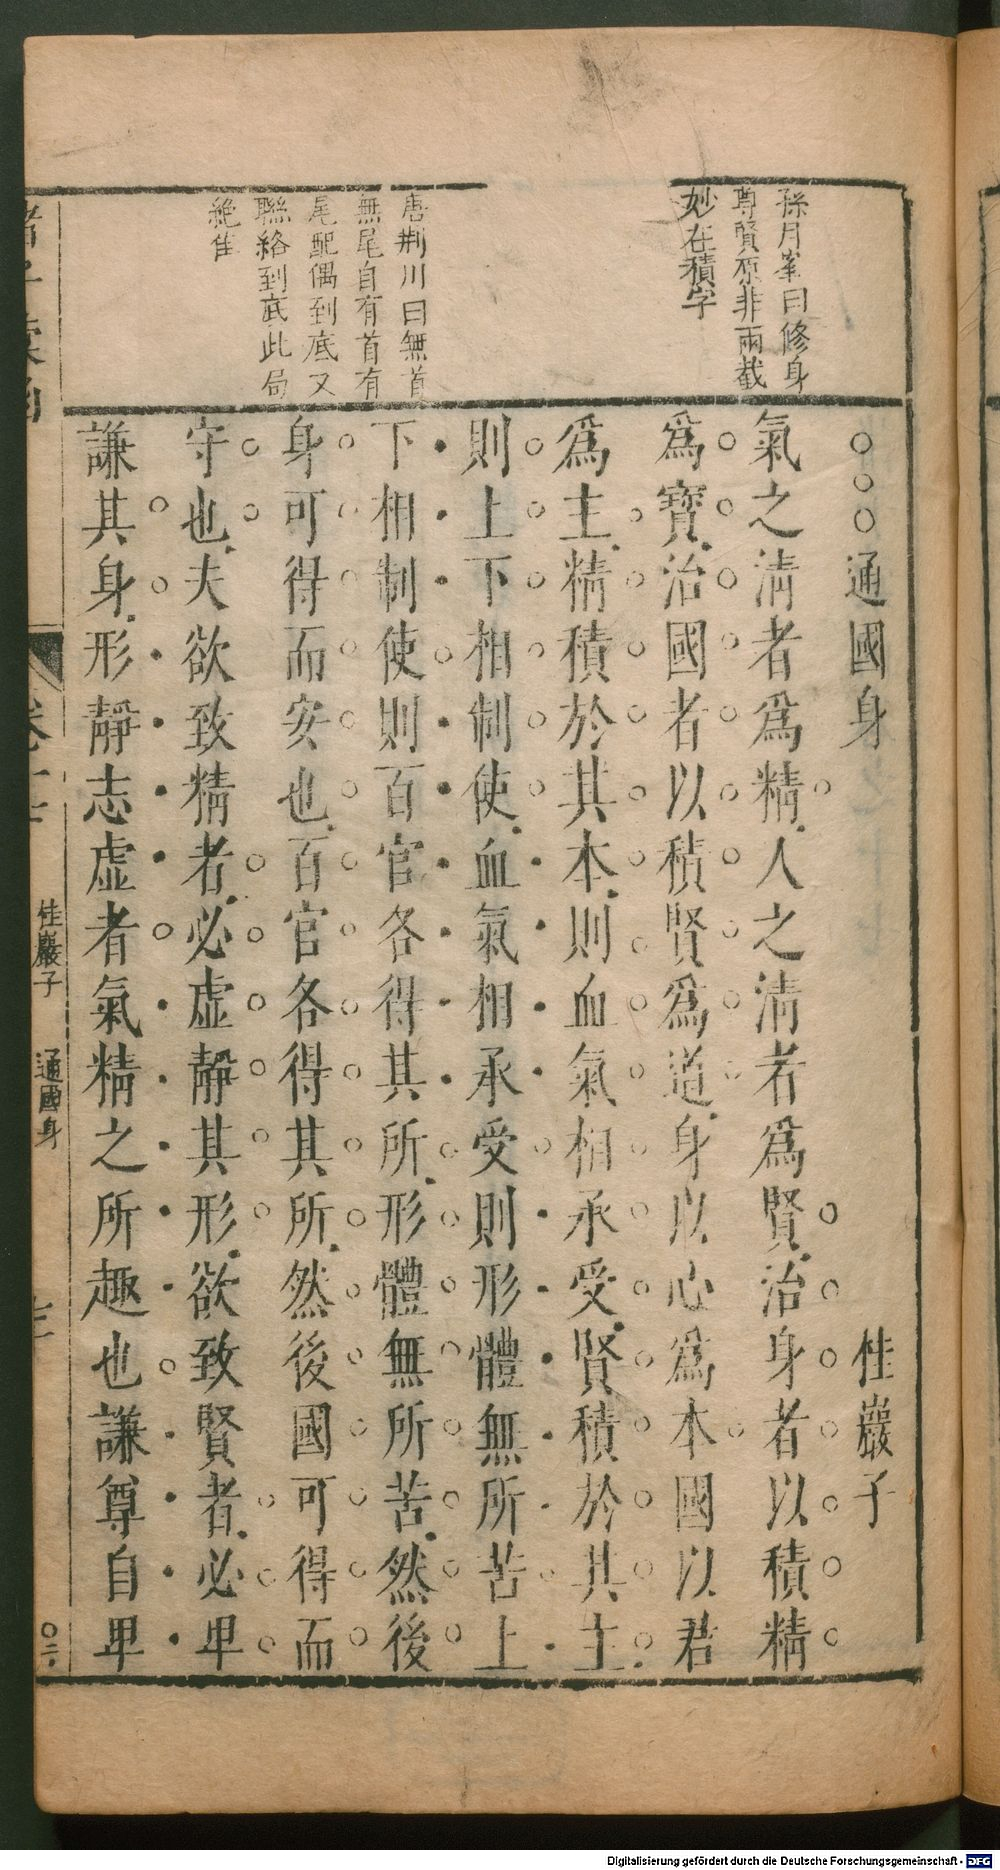 孫月峯曰修身
尊賢原非兩截
妙在積字
唐荆川曰無首
無尾自有首有
尾配偶到底又
聯絡到底此局
絶佳
○○○通國身 桂巖子
氣之清者爲精人之清者爲賢治身者以積精
爲寳治國者以積賢爲道身以心爲本國以君
爲主精積於其本則血氣相承受賢積於其主
則上下相制使血氣相承受則形體無所苦上
下相制使則百官各得其所形體無所苦然後
身可得而安也百官各得其所然後國可得而
守也夫欲致精者必虛靜其形欲致賢者必卑
謙其身形靜志虛者氣精之所趣也謙尊自卑
桂巖子 通國身
Digitalisierung gefördert durch die Deutsche Forschungsgemeinschaft - DFG